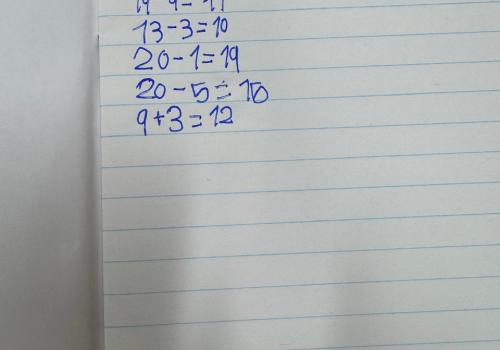 13-3=10
20-1=19
20-5=15
9+3=12